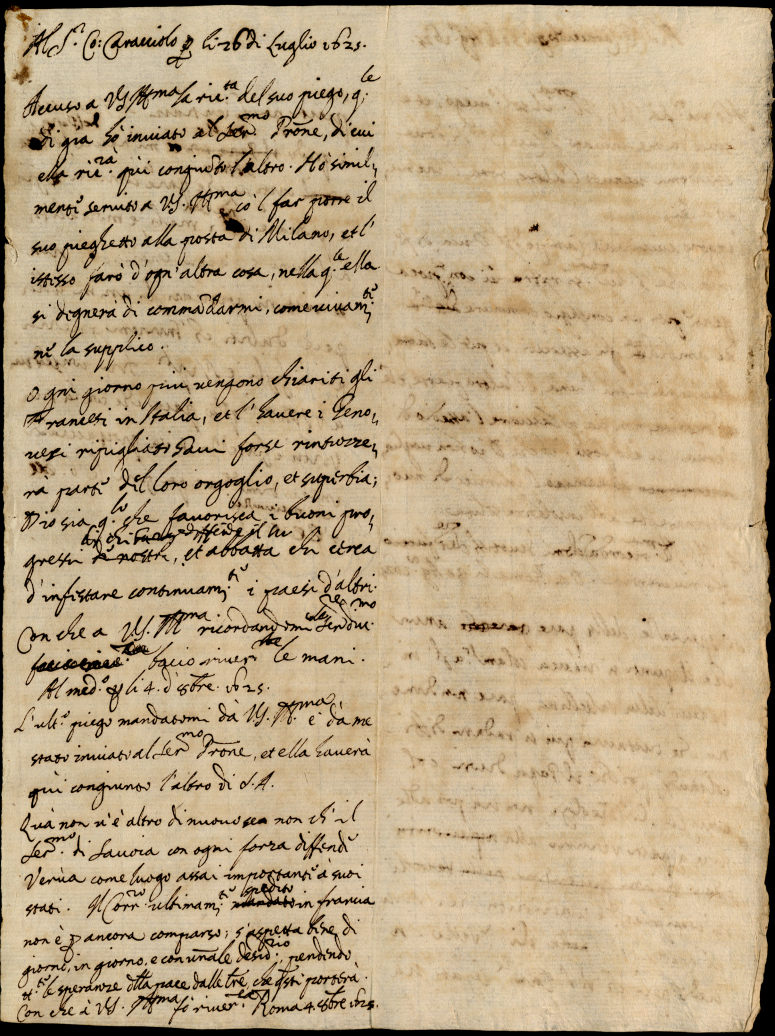 Al S.r Co: Caracciolo p li 26 di Luglio 1625.
Accuso a VS Ill.ma la ric.ta del suo piego, q.le
di già hò inviato al Ser.mo Prone, di cui
ella ric.rà quì congiunto l'altro. Hò simil,,
mente servito a VS. Ill.ma cò'l far porre il
suo pieghetto alla posta di Milano, et l'
istesso farò d'ogn'altra cosa, nella q.le ella
si degnerà di commadarmi, come vivam.te
ne la supplico.
Ogni giorno più vengono chiariti gli
Francesi in Italia, et l'havere i Geno,,
vesi ripigliato forse rintuzze,,
rà parte del loro orgoglio, et superbia;
Dio sia q.lo che favorisca i buoni pro,,
gressi nostri, et abbatta chi cerca
d'infistare continuam.te i paesi d'altri.
Con che a VS. Ill.ma ricordandomi
bacio river.te le mani.
Al med.o p li 4. d'8bre. 1625.
L'ult.o piego mandatomi dà VS. Ill.ma è dà me
stato inviato al Ser.mo Prone, et ella haverà
quì congiunto l'altro di S.A.
Quà non v'è altro di nuovo se non ch'il
Ser.mo di Savoia con ogni forza diffende
Verùa come luogo assai importante à suoi
stati. Il Corr.ro ultimam.te spedito in francia
non è p ancora comparso; s'aspetta bene di
giorno, in giorno, e con unale desid.rio, pendendo
le speranze della pace dalle tre, che q.sti porterà.
Con che à VS. Ill.ma fò river.za Roma 4. 8bre 1625.